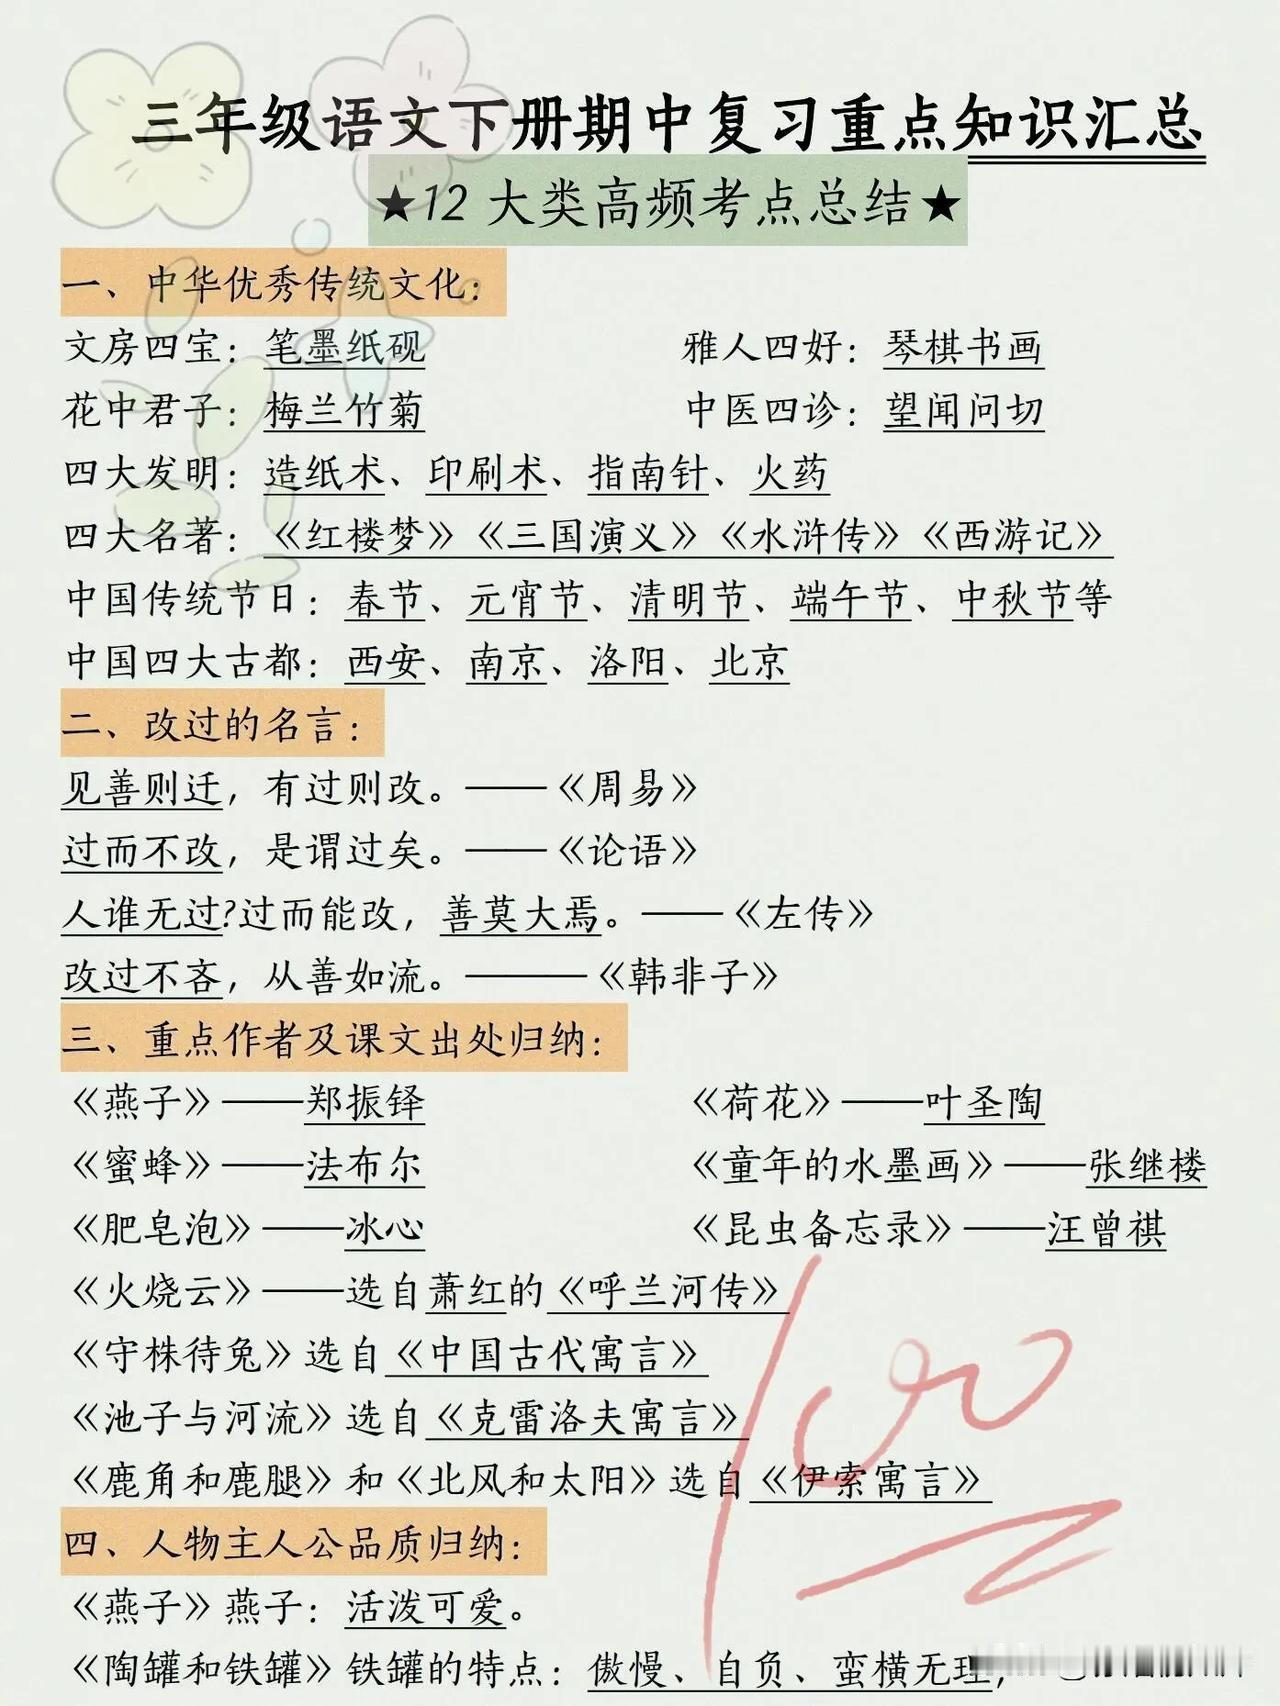 三年级语文下册期中复习重点知识汇总
★12大类高频考点总结★
一、中华优秀传统文化：
文房四宝：笔墨纸砚 雅人四好：琴棋书画
花中君子：梅兰竹菊 中医四诊：望闻问切
四大发明：造纸术、印刷术、指南针、火药
四大名著：《红楼梦》《三国演义》《水浒传》《西游记》
中国传统节日：春节、元宵节、清明节、端午节、中秋节等
中国四大古都：西安、南京、洛阳、北京
二、改过的名言：
见善则迁，有过则改。——《周易》
过而不改，是谓过矣。——《论语》
人谁无过?过而能改，善莫大焉。——《左传》
改过不吝，从善如流。———《韩非子》
三、重点作者及课文出处归纳：
《燕子》——郑振铎 《荷花》——叶圣陶
《蜜蜂》——法布尔 《童年的水墨画》——张继楼
《肥皂泡》——冰心 《昆虫备忘录》——汪曾祺
《火烧云》——选自萧红的《呼兰河传》
《守株待兔》选自《中国古代寓言》
《池子与河流》选自《克雷洛夫寓言》
《鹿角和鹿腿》和《北风和太阳》选自《伊索寓言》
100
四、人物主人公品质归纳：
《燕子》燕子：活泼可爱。
《陶罐和铁罐》铁罐的特点：傲慢、自负、蛮横无理，